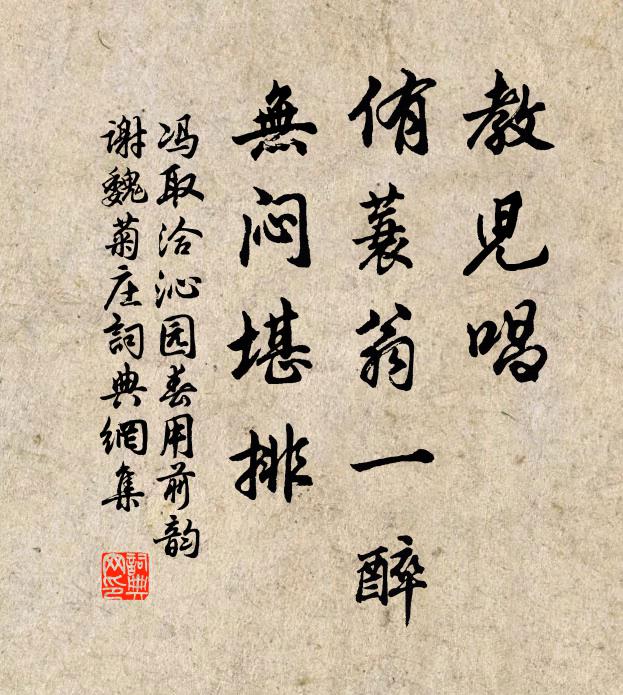 教児唱
侑蓑翁一醉
無闷堪排
冯取洽沁园春用前韵
谢魏菊庄詞典網集
詞典
网印